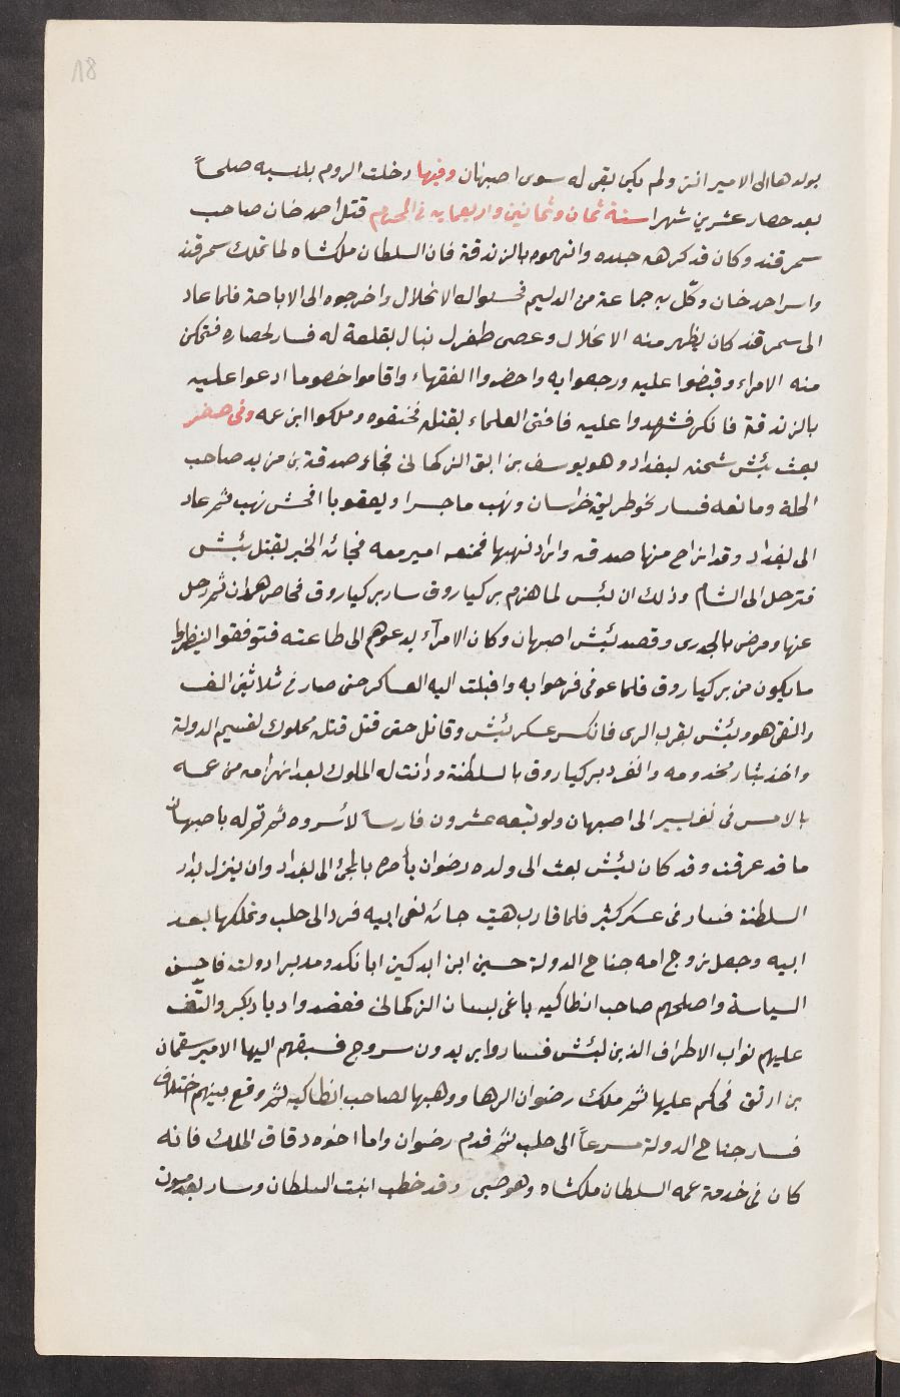 18
بولدها الى الامير انز ولم يكن بقى له سوى اصبهان وفيها دخلت الروم بلنسيه صلحاً
بعد حصار عشرين شهرا سنة ثمان وثمانين واربعمايه فى المحرم قتل احمد خان صاحب
سمرقند وكان قد كرهه جنده واتهموه بالزندقة فان السلطان ملكشاه لما تملك سمرقند
واسر احمد خان وكّل به جماعة من الديلم فحسنوا له الانحلال واخرجوه الى الاباحة فلما عاد
الى سمرقند كان يظهر منه الانحلال وعصى طغرل ينال بقلعة له فسار لحصاره فتمكن
منه الامراء وقبضوا عليه ورجعوا به واحضروا الفقهاء واقاموا خصوما ادعوا عليه
بالزندقة فانكر فشهدوا عليه فافتى العلماء بقتله فخنقوه وملكوا ابن عمه وفى صفر
بعث تتش شحنه لبغداد وهو يوسف بن ابق التركمانى فجاء صدقة بن مزيد صاحب
الحلة ومانعه فسار نحو طريق خراسان ونهب باجسرا وبعقوبا افحش نهب ثم عاد
الى بغداد وقد راح منها صدقه واراد نهبها فمنعه امير معه فجائه الخبر بقتل تتش
فترحل الى الشام وذلك ان تتش لما هزم بركياروق سار بركياروق فحاصر همدان ثم رحل
عنها ومرض بالجدرى وقصد تتش اصبهان وكان الامرآء يدعوهم الى طاعته فتوقفوا لينظروا
ما يكون من بركياروق فلما عوفى فرحوا به واقبلت اليه العساكر حتى صار فى ثلاثين الف
والتقى هو وتتش بقرب الرى فانكسر عسكر تتش وقاتل حتى قتل قتله مملوك لقسيم الدولة
واخذ بثار مخدومه وانفرد بركياروق بالسلطنة ودانت له الملوك بعد انهزامه من عمه
بالامس فى نفر يسير الى اصبهان ولو تبعه عشرون فارساً لأسروه ثم تم له باصبهان
ما قد عرفت وقد كان تتش بعث الى ولده رضوان يأمره بالمجئ الى بغداد وان ينزل بدار
السلطنة فسار فى عسكر كثير فلما قارب هيت جائه نعى ابيه فرد الى حلب وتملكها بعد
ابيه وجعل زوج امه جناح الدولة حسين ابن ايدكين اتابكه ومدبر دولته فاحسن
السياسة واصلحهم صاحب انطاكيه باغى بسان التركمانى فقصدوا دياربكر والتّف
عليهم نواب الاطراف الذين لتتش فساروا يريدون سروج فسبقهم اليها الامير سقمان
بن ارتق فحكم عليها ثم ملك رضوان الرها ووهبها لصاحب انطاكيه ثم وقع بينهم اختلاف
فسار جناح الدولة مسرعاً الى حلب ثم قدم رضوان واما اخوه دقاق الملك فانه
كان فى خدمة عمه السلطان ملكشاه وهو صبى وقد خطب ابنت السلطان وسار بعد موت